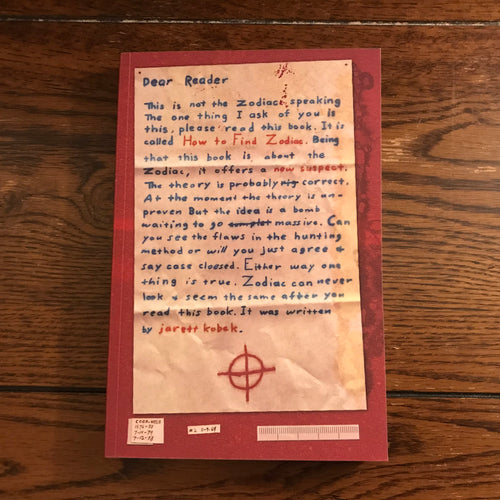 Dear Reader
This is not the Zodiac speaking
The one thing I ask of you is
this, please read this book. It is
called How to Find Zodiac. Being
that this book is about the
Zodiac, it offers a new suspect.
The theory is probably correct.
At the moment the theory is un-
proven But the idea is a bomb
waiting to go massive. Can
you see the flaws in the hunting
method or will you just agree &
say case cloesed. Either way one
thing is true. Zodiac can never
look & seem the same after you
read this book. It was written
by jarett kobek.